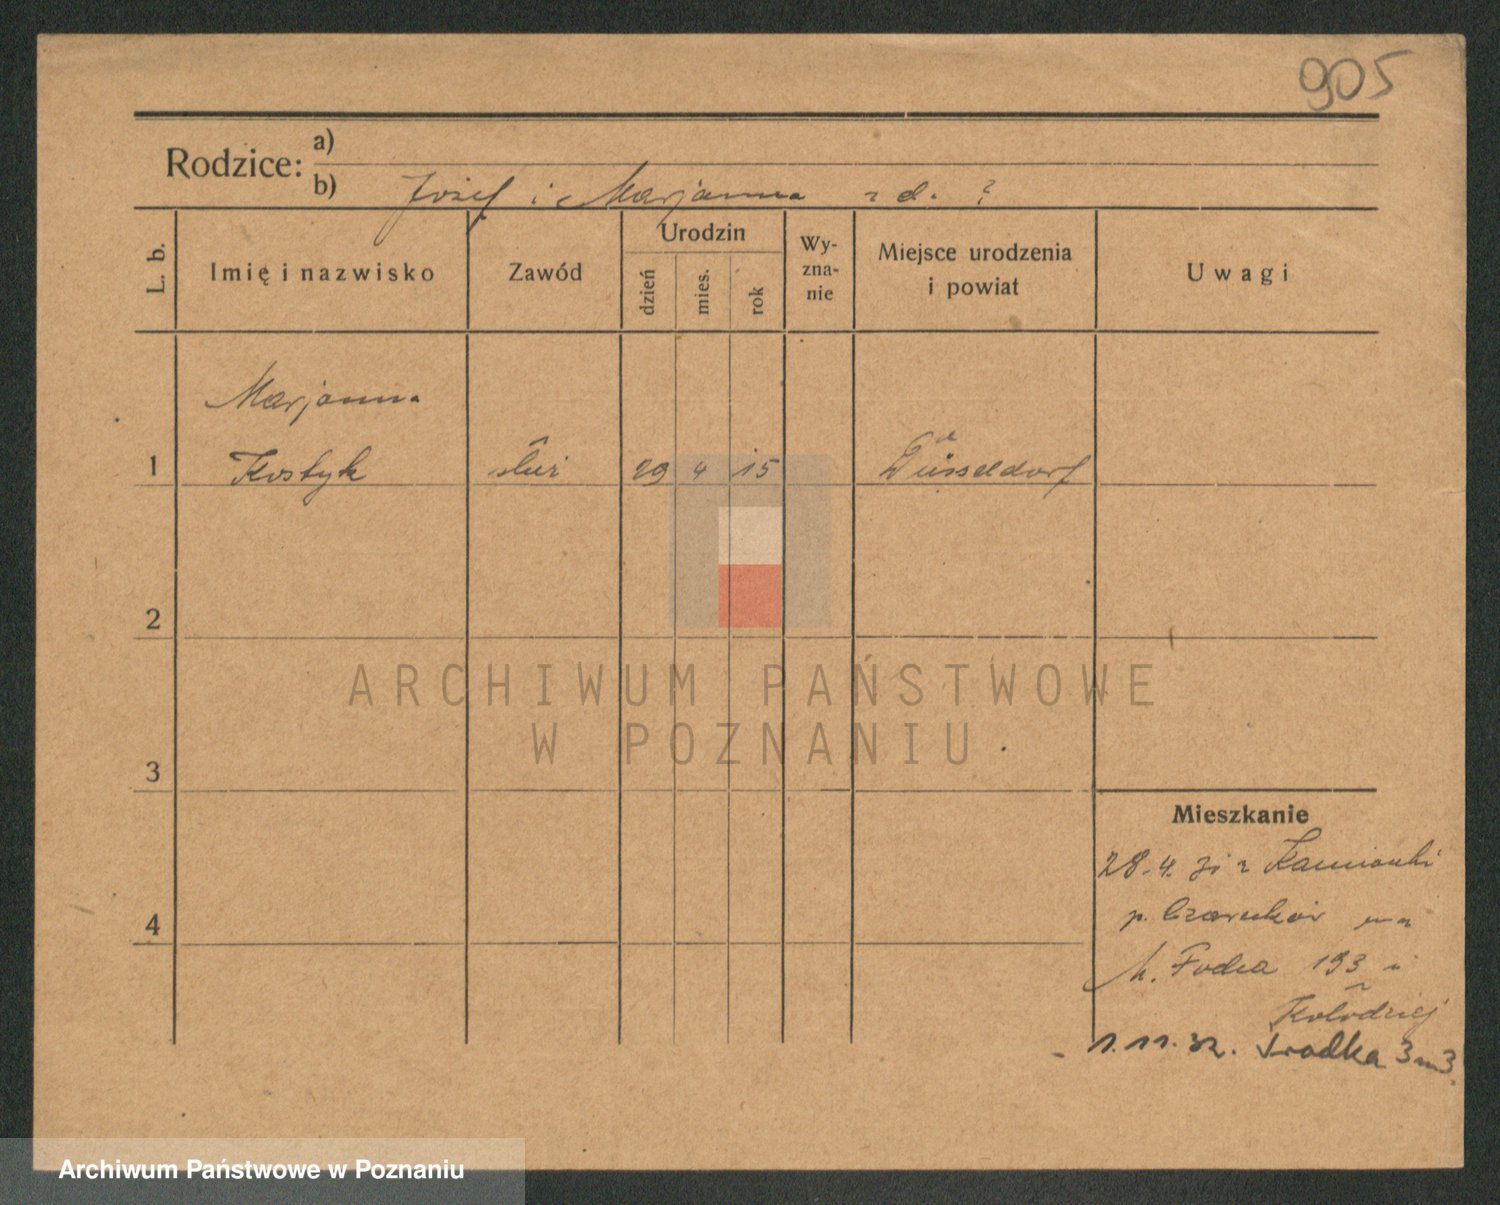 905
Rodzice: a)
b) Józef i Marjanna z d. ?
L. b.
Imię i nazwisko
Zawód
Urodzin
dzień
mies.
rok
Wy-
zna-
nie
Miejsce urodzenia
i powiat
Uwagi
Marjanna
1 Kostyk służ 29 4 15 Düsseldorf
2
3
4
Mieszkanie
28.4. z Kamionki
p. Czarnków na
M. Focha 193 u
Kołodziej
1.11.32. Środka 3 m 3.
ARCHIWUM PAŃSTWOWE
W POZNANIU
Archiwum Państwowe w Poznaniu